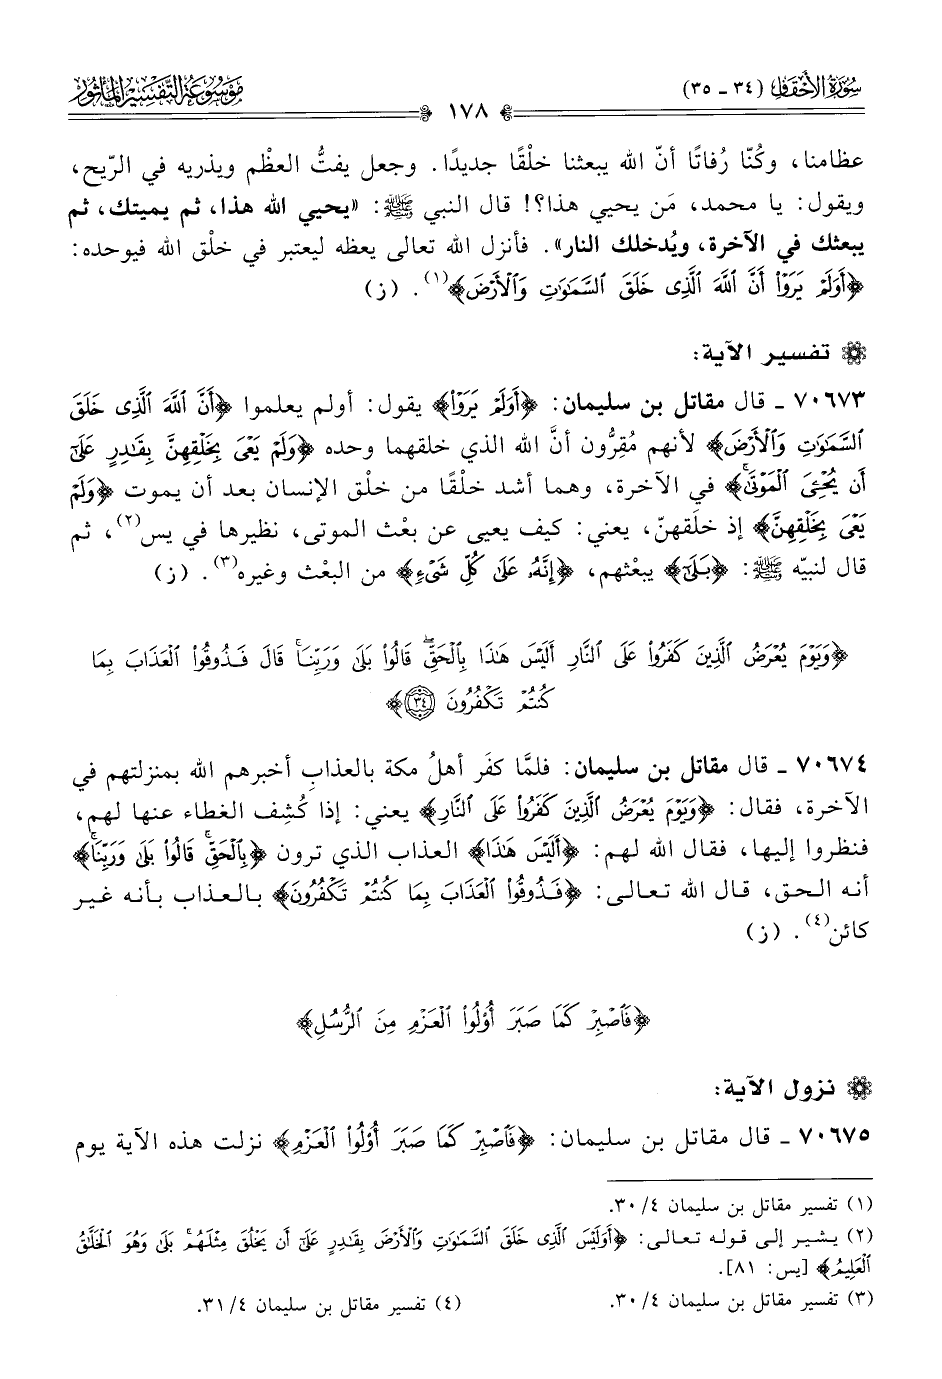 سورة الأحقاف (٣٤ - ٣٥)
١٧٨
موسوعة التفسير المأثور
عظامنا، وكُنّا رُفاتًا أنّ الله يبعثنا خلْقًا جديدًا. وجعل يفتُّ العظْم ويذريه في الرّيح،
ويقول: يا محمد، مَن يحيي هذا؟! قال النبي ﷺ: «يحيي الله هذا، ثم يميتك، ثم
يبعثك في الآخرة، ويُدخلك النار». فأنزل الله تعالى يعظه ليعتبر في خلْق الله فيوحده:
﴿أَوَلَمْ يَرَوْا۟ أَنَّ ٱللَّهَ ٱلَّذِى خَلَقَ ٱلسَّمَـٰوَٰتِ وَٱلْأَرْضَ﴾(١). (ز)
تفسير الآية:
٧٠٦٧٣ - قال مقاتل بن سليمان: ﴿أَوَلَمْ يَرَوْا۟﴾ يقول: أولم يعلموا ﴿أَنَّ ٱللَّهَ ٱلَّذِى خَلَقَ
ٱلسَّمَـٰوَٰتِ وَٱلْأَرْضَ﴾ لأنهم مُقِرُّون أنَّ الله الذي خلقهما وحده ﴿وَلَمْ يَعْىَ بِخَلْقِهِنَّ بِقَـٰدِرٍ عَلَىٰٓ
أَن يُحْـِۧىَ ٱلْمَوْتَىٰ﴾ في الآخرة، وهما أشد خلْقًا من خلْق الإنسان بعد أن يموت ﴿وَلَمْ
يَعْىَ بِخَلْقِهِنَّ﴾ إذ خلَقهنّ، يعني: كيف يعيى عن بعْث الموتى، نظيرها في يس(٢)، ثم
قال لنبيّه ﷺ: ﴿بَلَىٰٓ﴾ يبعْثهم، ﴿إِنَّهُۥ عَلَىٰ كُلِّ شَىْءٍ﴾ من البعْث وغيره(٣). (ز)
﴿وَيَوْمَ يُعْرَضُ ٱلَّذِينَ كَفَرُوا۟ عَلَى ٱلنَّارِ أَلَيْسَ هَـٰذَا بِٱلْحَقِّ ۖ قَالُوا۟ بَلَىٰ وَرَبِّنَا ۚ قَالَ فَذُوقُوا۟ ٱلْعَذَابَ بِمَا
كُنتُمْ تَكْفُرُونَ ٣٤﴾
٧٠٦٧٤ - قال مقاتل بن سليمان: فلمَّا كفَر أهلُ مكة بالعذابِ أخبرهم الله بمنزلتهم في
الآخرة، فقال: ﴿وَيَوْمَ يُعْرَضُ ٱلَّذِينَ كَفَرُوا۟ عَلَى ٱلنَّارِ﴾ يعني: إذا كُشِف الغطاء عنها لهم،
فنظروا إليها، فقال الله لهم: ﴿أَلَيْسَ هَـٰذَا﴾ العذاب الذي ترون ﴿بِٱلْحَقِّ ۚ قَالُوا۟ بَلَىٰ وَرَبِّنَا ۚ﴾
أنه الحق، قال الله تعالى: ﴿فَذُوقُوا۟ ٱلْعَذَابَ بِمَا كُنتُمْ تَكْفُرُونَ﴾ بالعذاب بأنه غير
كائن(٤). (ز)
﴿فَٱصْبِرْ كَمَا صَبَرَ أُو۟لُوا۟ ٱلْعَزْمِ مِنَ ٱلرُّسُلِ﴾
نزول الآية:
٧٠٦٧٥ - قال مقاتل بن سليمان: ﴿فَٱصْبِرْ كَمَا صَبَرَ أُو۟لُوا۟ ٱلْعَزْمِ﴾ نزلت هذه الآية يوم
(١) تفسير مقاتل بن سليمان ٤/ ٣٠.
(٢) يشير إلى قوله تعالى: ﴿أَوَلَيْسَ ٱلَّذِى خَلَقَ ٱلسَّمَـٰوَٰتِ وَٱلْأَرْضَ بِقَـٰدِرٍ عَلَىٰٓ أَن يَخْلُقَ مِثْلَهُم ۚ بَلَىٰ وَهُوَ ٱلْخَلَّـٰقُ
ٱلْعَلِيمُ﴾ [يس: ٨١].
(٣) تفسير مقاتل بن سليمان ٤/ ٣٠.
(٤) تفسير مقاتل بن سليمان ٤/ ٣١.